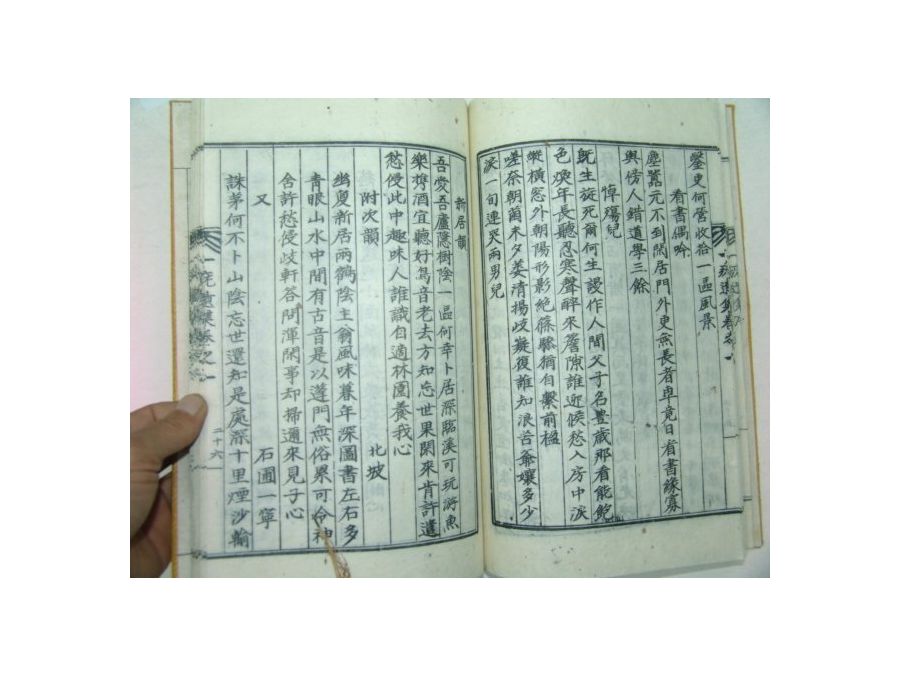 鑿更何管收拾一區風景
看書偶吟
塵囂元不到閑居門外更無長者車竟日看書緣寡
與傍人錯道學三餘
悼殤兒
旣生旋死爾何生謾作人間父子名豊歲那看能飽
色煥年長聽忍寒聲醉來簷隙誰迎候愁入房中淚
縱橫窓外朝陽形影絶篠驂猶自繫前楹
嗟奈朝蘭未夕萎清揚歧凝復誰知浪苦爺孃多少
淚一旬連哭兩男兒
新居韻
吾愛吾廬隱樹陰一區何幸卜居深臨溪可玩游魚
樂携酒宜聽好鳥音老去方知忘世果閑來肯許遣
愁侵此中趣味人誰識自適林園養我心
附次韻 北坡
幽夐新居兩鶴陰主翁風味暮年深圖書左右多
青眼山水中間有古音是以蓬門無俗累可令神
舍許愁侵歧軒答問渾閑事却掃邇來見子心
又 石圃一寧
誅茅何不卜山陰忘世還知是處深十里煙沙輸
二十六